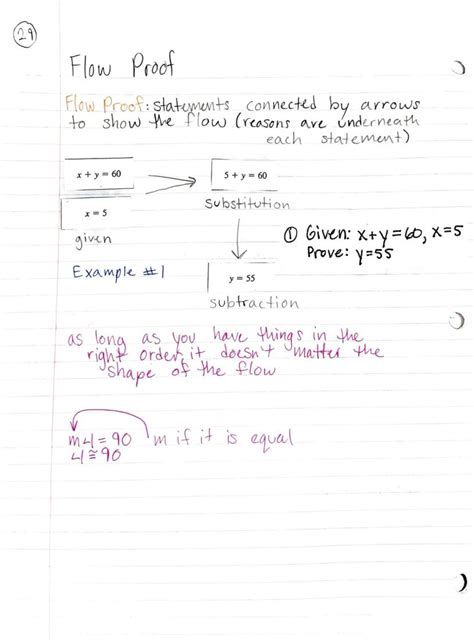 29
Flow Proof
Flow Proof: statements connected by arrows
to show the flow (reasons are underneath
each statement)
x + y = 60
5 + y = 60
x = 5
substitution
given
① Given: x+y=60, x=5
Prove: y=55
Example #1
y = 55
subtraction
as long as you have things in the
right order, it doesn't matter the
shape of the flow
m∠1 = 90 m if it is equal
∠1 ≅ 90